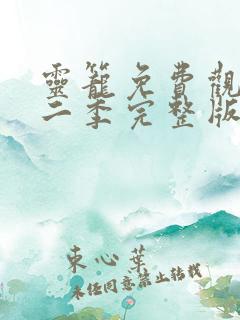 靈籠免費觀
二季完整版
東心葉
未经同意禁止转载